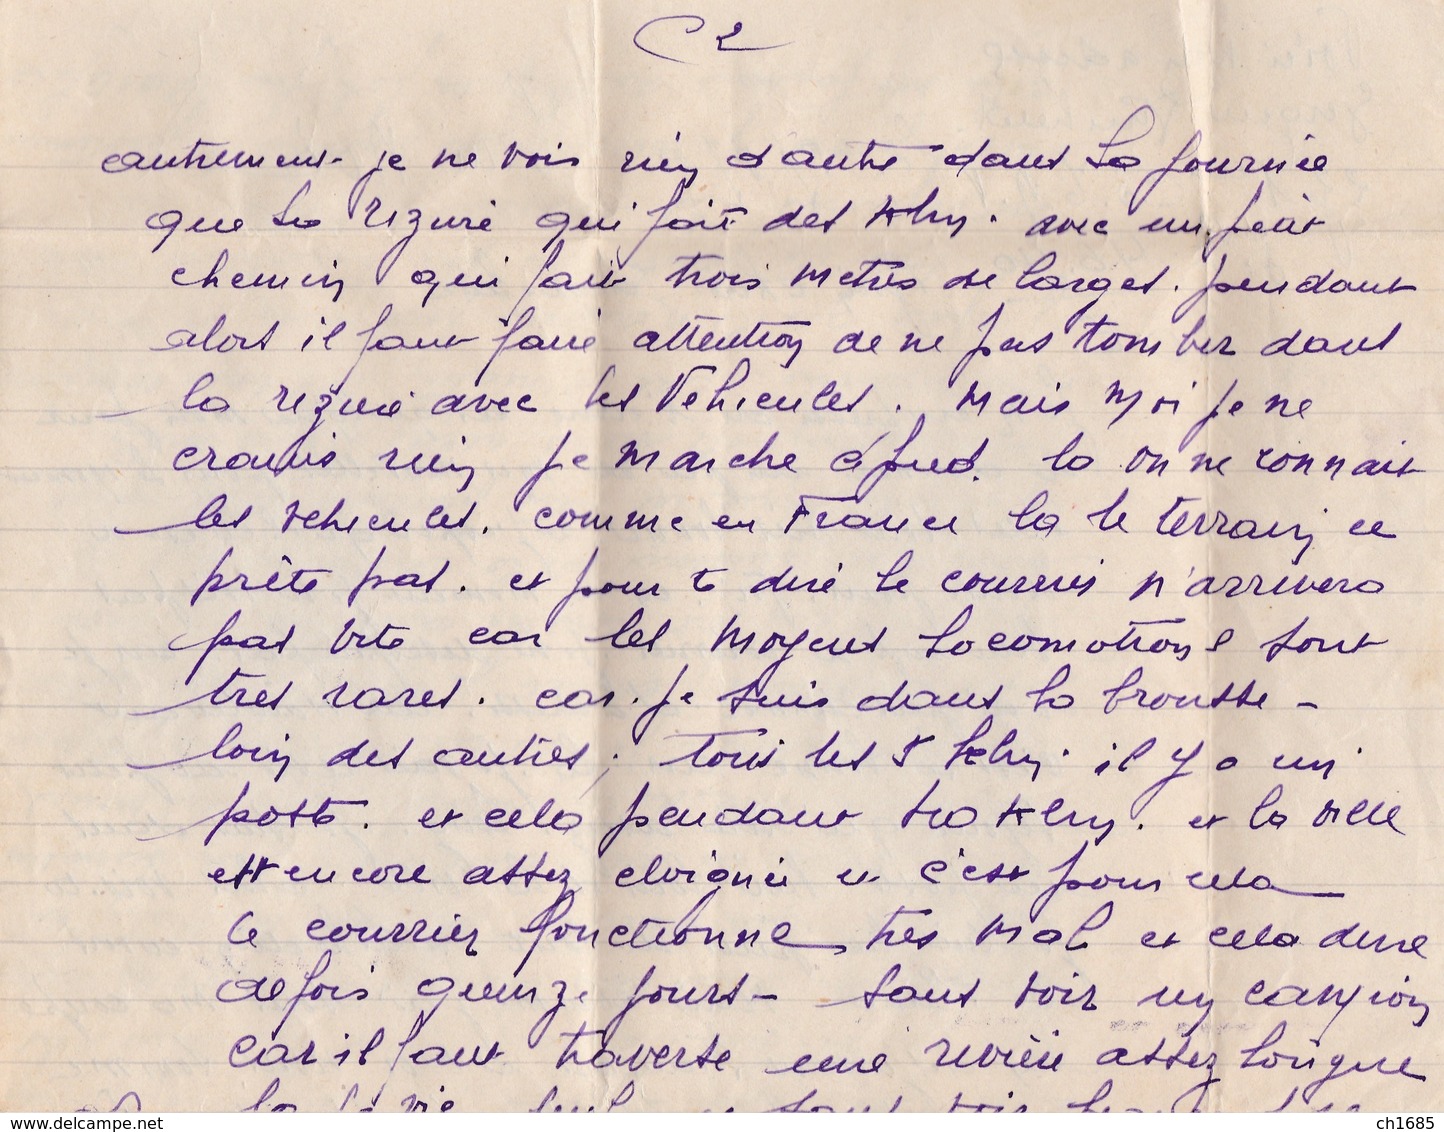 C 2
autrement je ne vois rien d'autre dans la journée
que la rizure qui fait des Klm. avec un petit
chemin qui fait trois metres de larges. pendant
alors il faut faire attention de ne pas tomber dans
la rizure avec les Vehicules. Mais Moi je ne
crains rien je marche à pied. la on ne connait
les vehicules. comme en France la le terrain ce
prète pas. et pour te dire le courrié n'arrivera
pas vite car les moyens locomotions sont
tres rares. car. je suis dans la brousse -
loin des autres; tous les 5 klm. il y a un
poste. et cela pendant Klm. et la ville
est encore assez eloignée et c'est pour cela
le courrier fonctionne tres mal et cela dure
de fois quinze jours - sans voir un camion
car il faut traverse une rivière assez longue
www.delcampe.net
ch1685